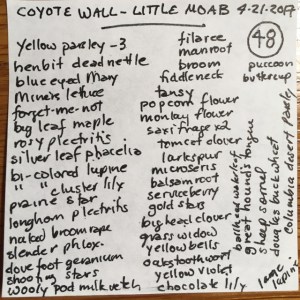 COYOTE WALL - LITTLE MOAB 4-21-2017
Yellow parsley -3
henbit deadnettle
blue eyed Mary
Miners lettuce
forget-me-not
big leaf maple
rosy plectritis
silver leaf phacelia
bi-colored lupine
" " cluster lily
prairie star
longhorn plectritis
naked broomrape
slender phlox
dove foot geranium
shooting stars
wooly pod milkvetch
filaree
manroot
broom
fiddleneck
tansy
popcorn flower
monkey flower
saxifrage x2
tomcat clover
larkspur
microseris
balsamroot
serviceberry
gold stars
big head clover
grass widow
yellow bells
oaks toothwort
yellow violet
chocolate lily
48
puccoon
buttercup
great hounds tongue
sheep sorrel
douglas buckwheat
columbia desert parsley
large lupine